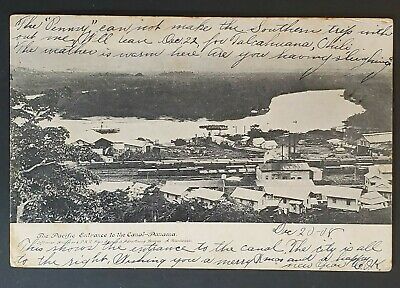 The "Pennsy" can not make the Southern trip with
out me. Will leave Dec 22 for Talcahuana, Chili.
The weather is warm here are you having sleighing
The Pacific Entrance to the Canal—Panama.
Dec 20-08
This shows the entrance to the canal. The city is all
to the right. Wishing you a merry Xmas and a happy
new year